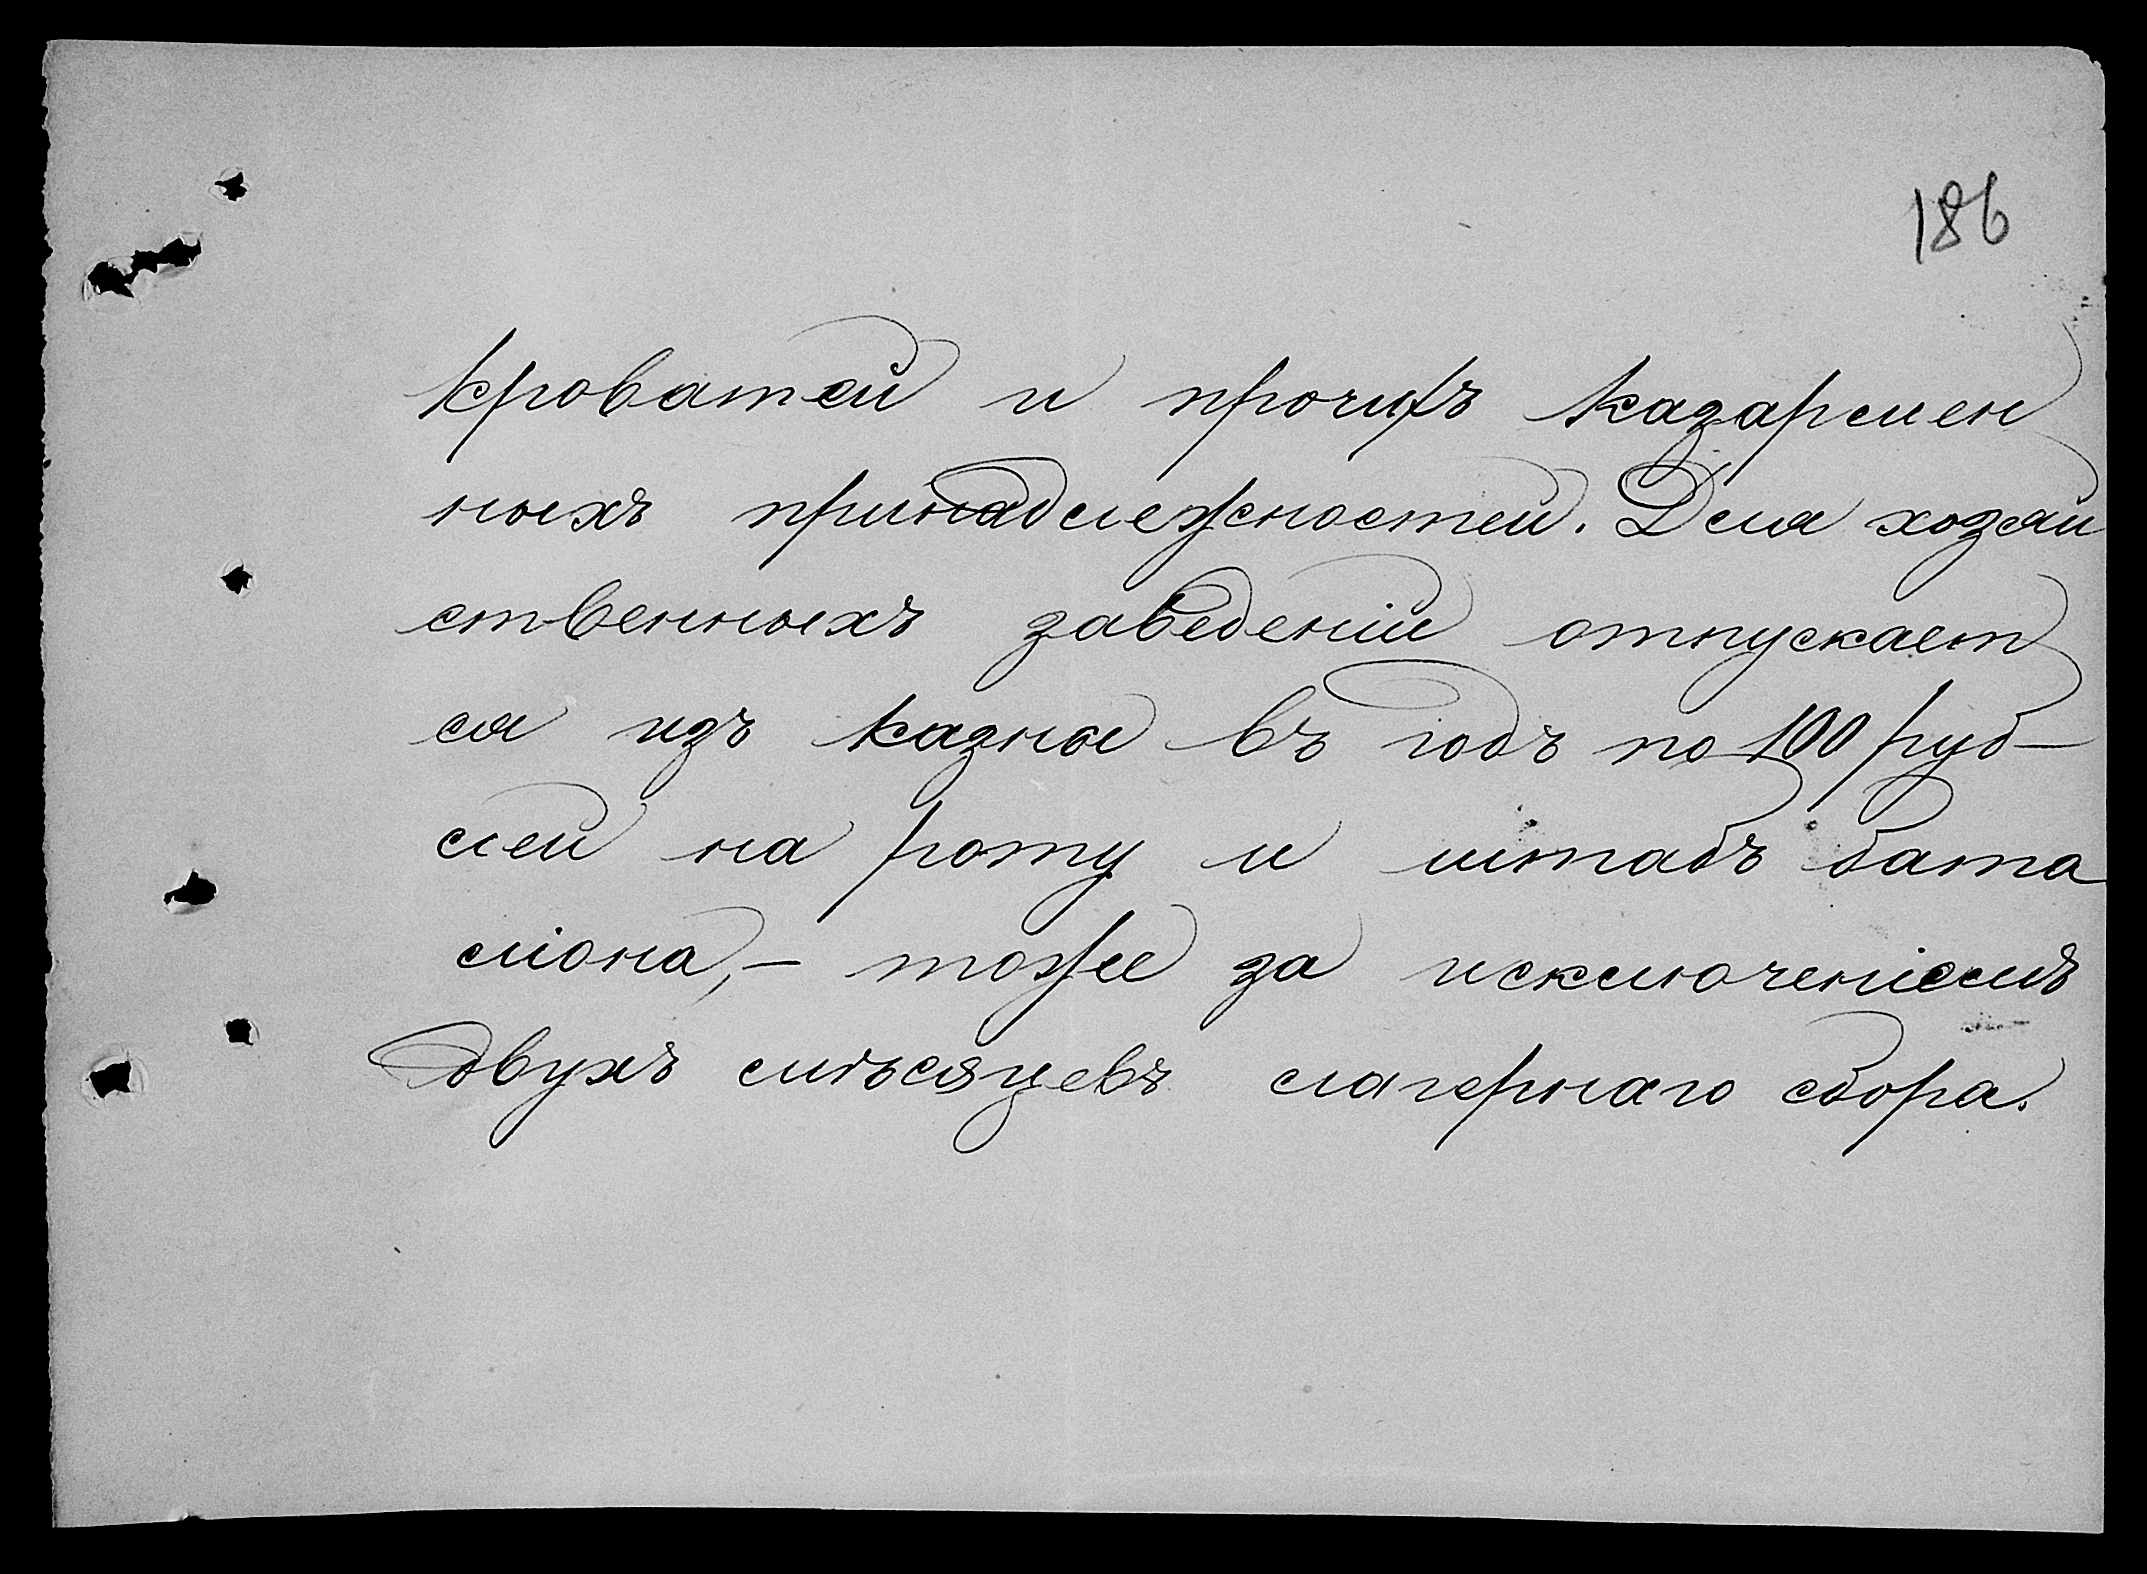 186
кроватей и прочихъ казармен
ныхъ принадлежностей. Для хозяй
ственныхъ заведеній отпускает
ся изъ казны въ годъ по 100 руб-
лей на роту и штабъ бата
ліона, - тоже за исключеніемъ
двухъ мѣсяцевъ лагернаго сбора.